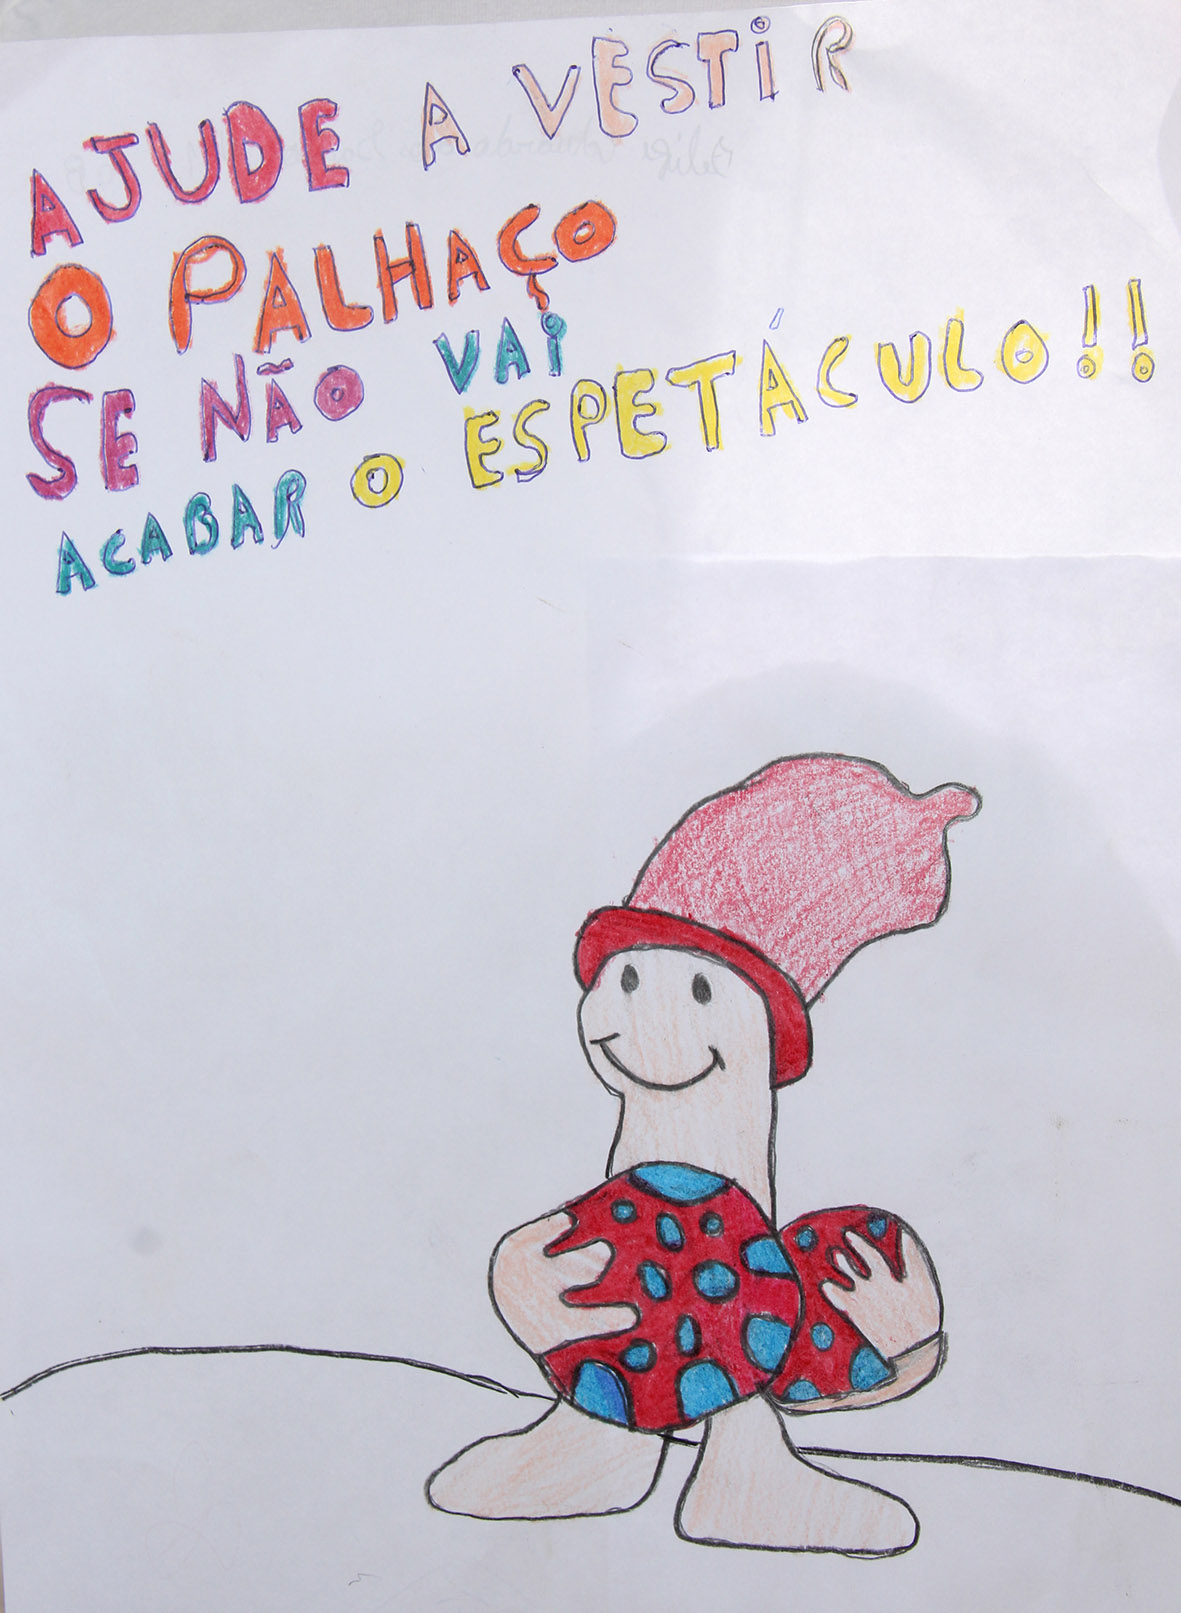 AJUDE A VESTIR
O PALHAÇO
SE NÃO VAI
ACABAR O ESPETÁCULO!!